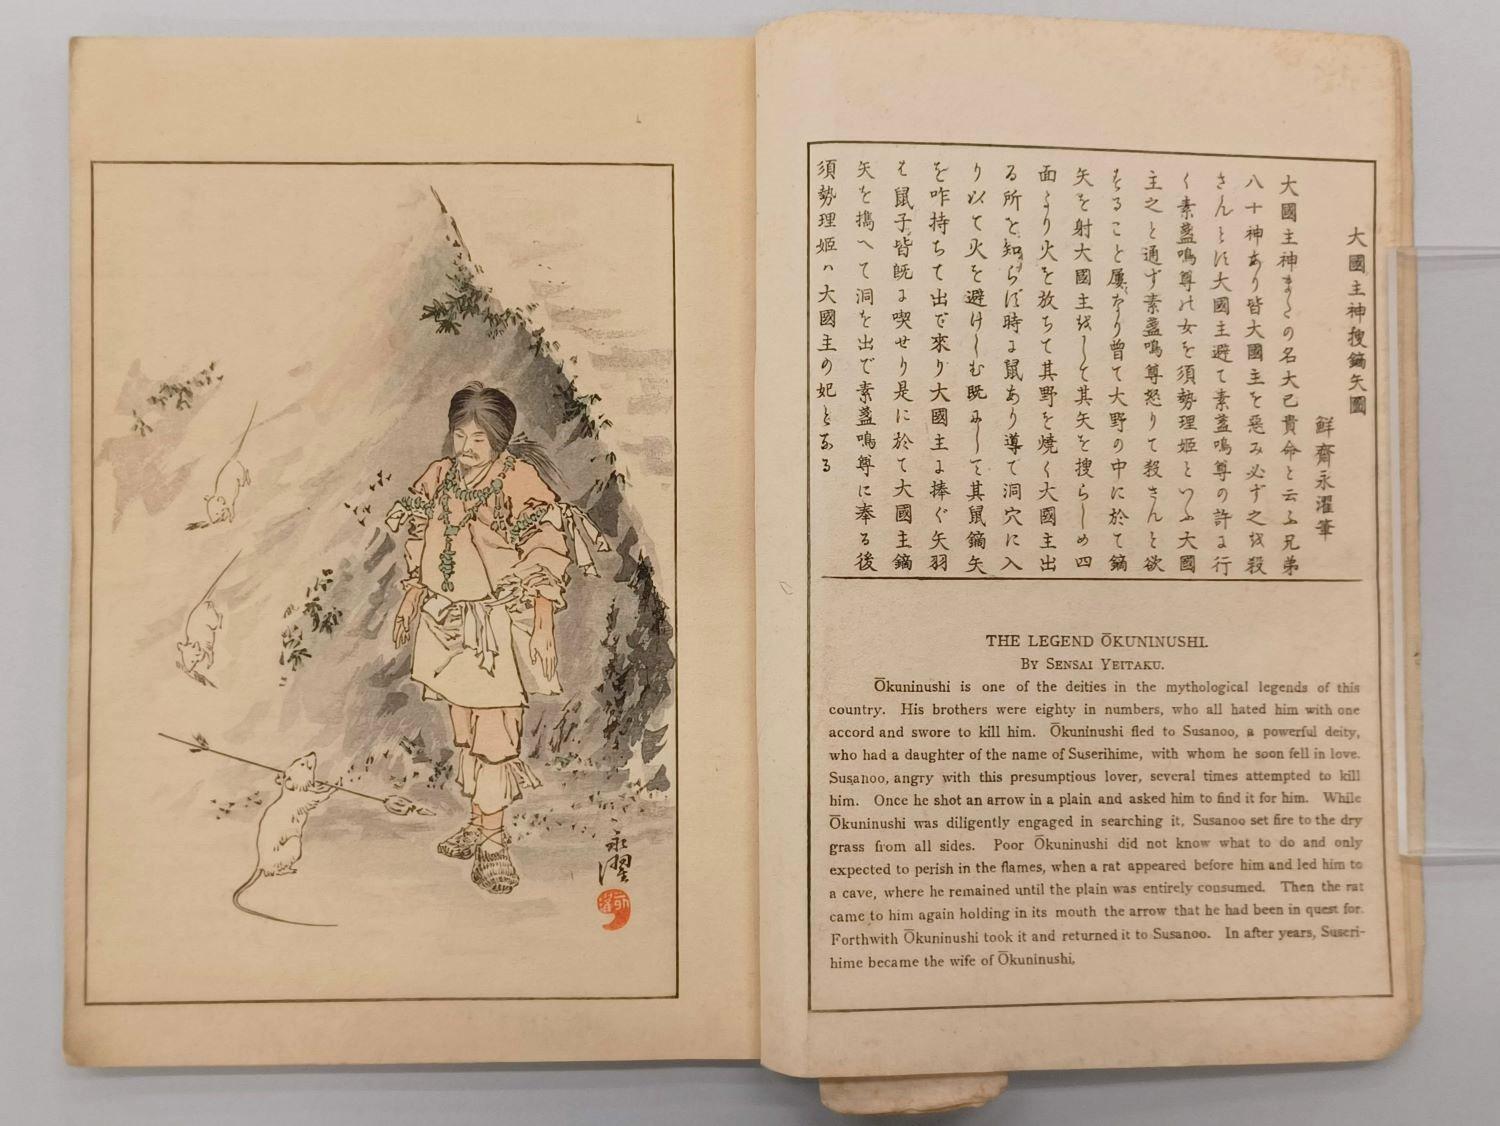 大國主神搜鏑矢圖
鮮齋永濯筆
大國主神またの名大己貴命と云ふ兄弟
八十神あり皆大國主を惡み必ず之を殺
さんとす大國主避て素盞鳴尊の許に行
く素盞鳴尊の女を須勢理姬といふ大國
主之と通ず素盞鳴尊怒りて殺さんと欲
することと屢なり曾て大野の中に於て鏑
矢を射大國主をして其矢を搜らしめ四
面より火を放ちて其野を燒く大國主出
る所を知らず時に鼠あり導て洞穴に入
り以て火を避けしむ既にして其鼠鏑矢
を咋持ちて出で來り大國主に捧ぐ矢羽
は鼠子皆既に喫せり是に於て大國主鏑
矢を携へて洞を出で素盞鳴尊に奉る後
須勢理姬ハ大國主の妃となる
THE LEGEND ŌKUNINUSHI.
By Sensai Yeitaku.
Ōkuninushi is one of the deities in the mythological legends of this
country. His brothers were eighty in numbers, who all hated him with one
accord and swore to kill him. Ōkuninushi fled to Susanoo, a powerful deity,
who had a daughter of the name of Suserihime, with whom he soon fell in love.
Susanoo, angry with this presumptious lover, several times attempted to kill
him. Once he shot an arrow in a plain and asked him to find it for him. While
Ōkuninushi was diligently engaged in searching it, Susanoo set fire to the dry
grass from all sides. Poor Ōkuninushi did not know what to do and only
expected to perish in the flames, when a rat appeared before him and led him to
a cave, where he remained until the plain was entirely consumed. Then the rat
came to him again holding in its mouth the arrow that he had been in quest for.
Forthwith Ōkuninushi took it and returned it to Susanoo. In after years, Suseri-
hime became the wife of Ōkuninushi.
永濯